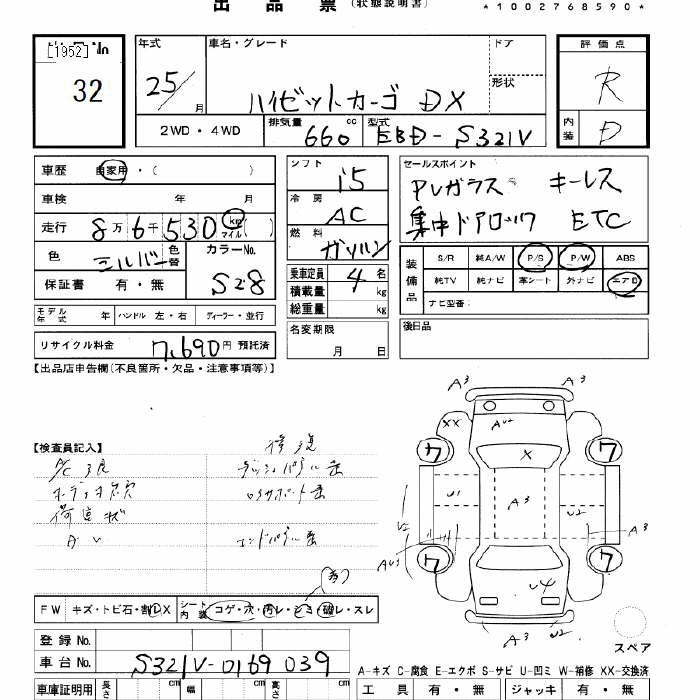 出品票 (状態説明書)
*1002768590*
[1952] No
32
年式
25/
月
車名・グレード
ハイゼットカーゴ DX
ドア
形状
評価点
R
内装
D
2WD・4WD
排気量 cc
660
型式
EBD-S321V
車歴 自家用・( )
車検 年 月
走行 8万6千530 km マイル ( )
色 シルバー 色替
カラーNo.
S28
保証書 有・無
シフト
i5
冷房
AC
燃料
ガソリン
乗車定員 4 名
積載量 kg
総重量 kg
セールスポイント
PVガラス キーレス
集中ドアロック ETC
装備品
S/R 純A/W P/S P/W ABS
純TV 純ナビ 革シート 外ナビ エアB
ナビ型番:
モデル年式 年 ハンドル 左・右 ディーラー・並行
名変期限
月 日
後日品
リサイクル料金 7,690円 預託済
【出品店申告欄(不良箇所・欠品・注意事項等)】
【検査員記入】
修復
A/C不良
ダッシュパネル歪
オーディオ欠
ロアサポート歪
荷室キズ
AU
エンドパネル歪
A3
A3
XX
AU2
ワ
ワ
X
U1
A3
U2
U2
A3
AU3
ワ
ワ
U4
A3
U2
スペア
FW キズ・トビ石・割レX
シート内装 コゲ・穴・汚レ・シミ・破レ・スレ
登録No.
車台No. S321V-0169039
A-キズ C-腐食 E-エクボ S-サビ U-凹ミ W-補修 XX-交換済
車庫証明用 長さ cm 幅 cm 高さ cm
工具 有・無 ジャッキ 有・無